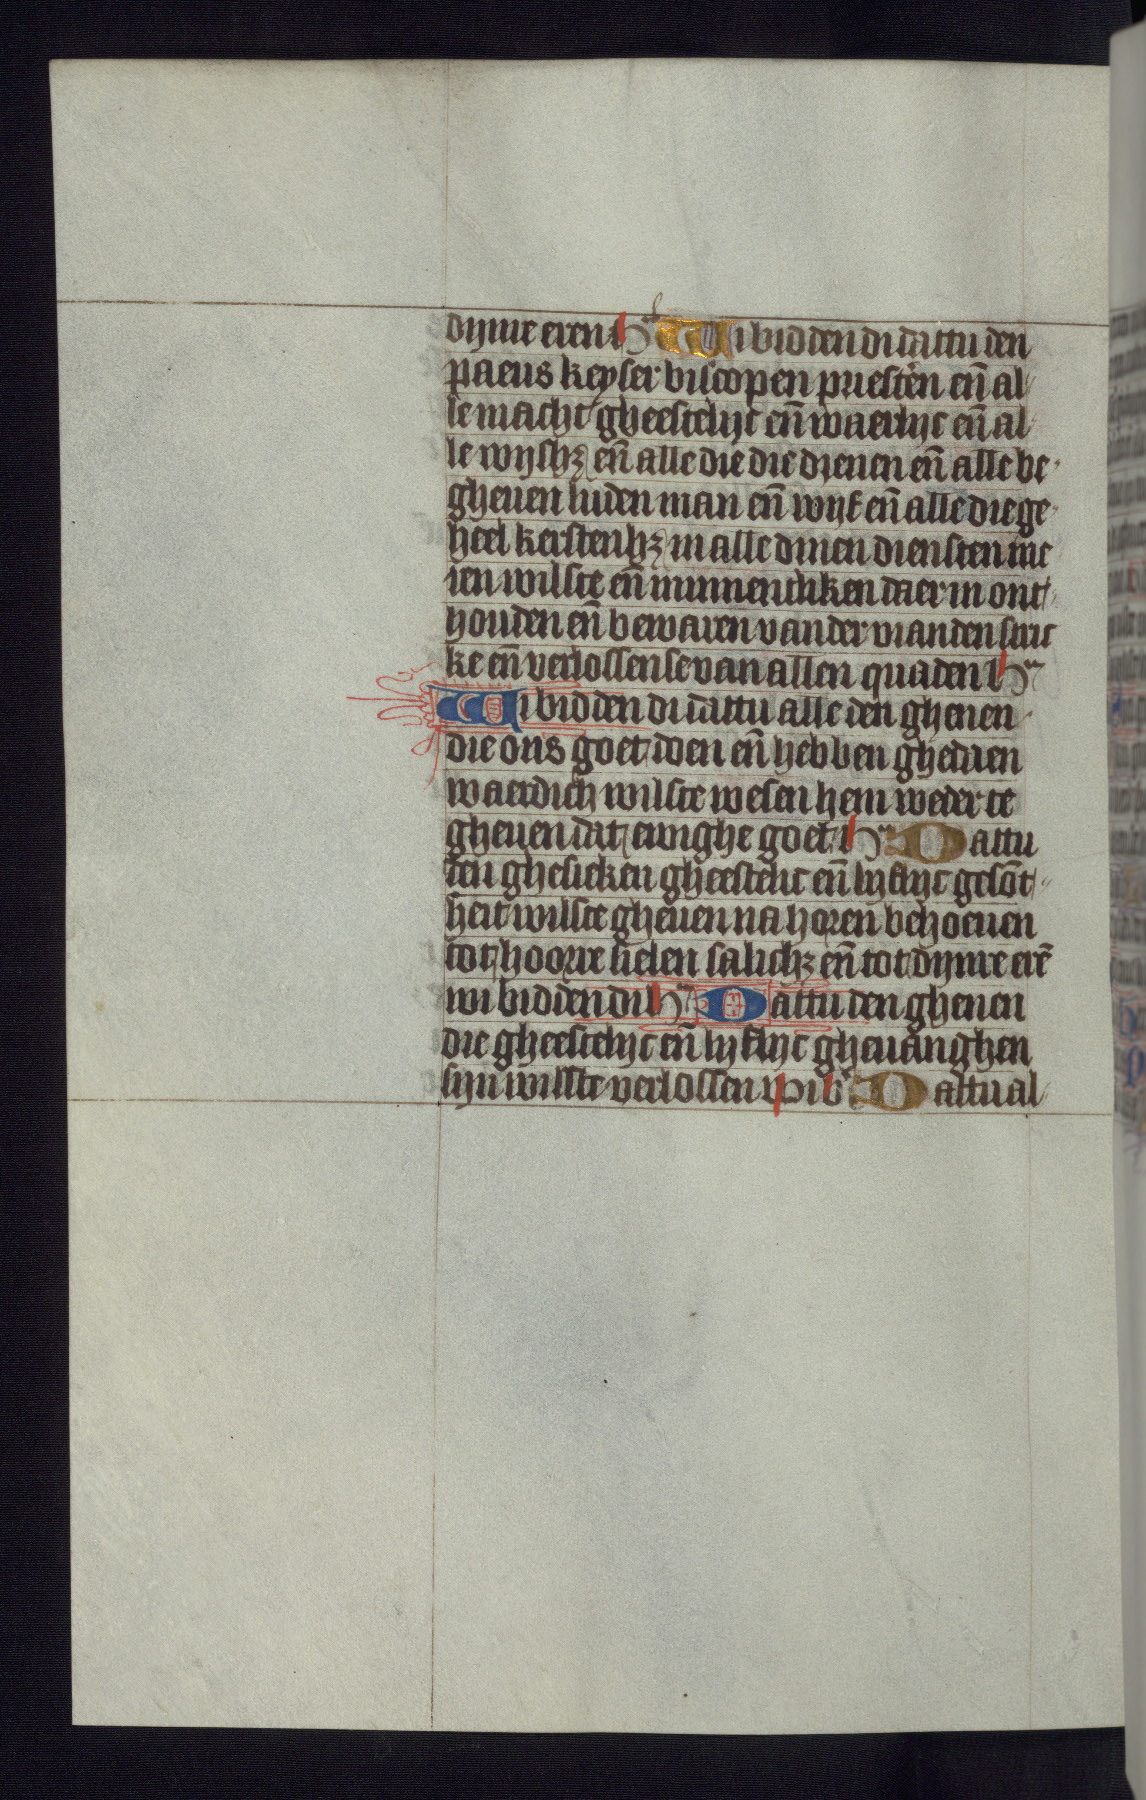 dynre eren H Wi bidden di dattu den
paeus keyser biscopen priesteren eñ al
le macht gheestelijc eñ waerlijc eñ al
le wijshʒ eñ alle die die dienen eñ alle be
gheuen luden man eñ wijf eñ alle die ge
heel kerstenhʒ in alle dinen diensten me
ren wilste eñ minnentliken daer in ont
houden eñ bewaren vander vianden stric
ke eñ verlossen se van allen quaden H
Wi bidden di dattu alle den ghenen
die ons goet doen eñ hebben ghedaen
waerdich wilste wesen hem weder te
gheuen dat ewighe goet H Dattu
den ghesieken gheestelic eñ lyflijc gesōt
heit wilste gheuen na horen behoeuen
tot hoorre sielen salichʒ eñ tot dynre erē
wi bidden di H Dattu den ghenen
die gheestelijc eñ lyflijc gheuanghen
syn wilste verlossen wi b Dattu al